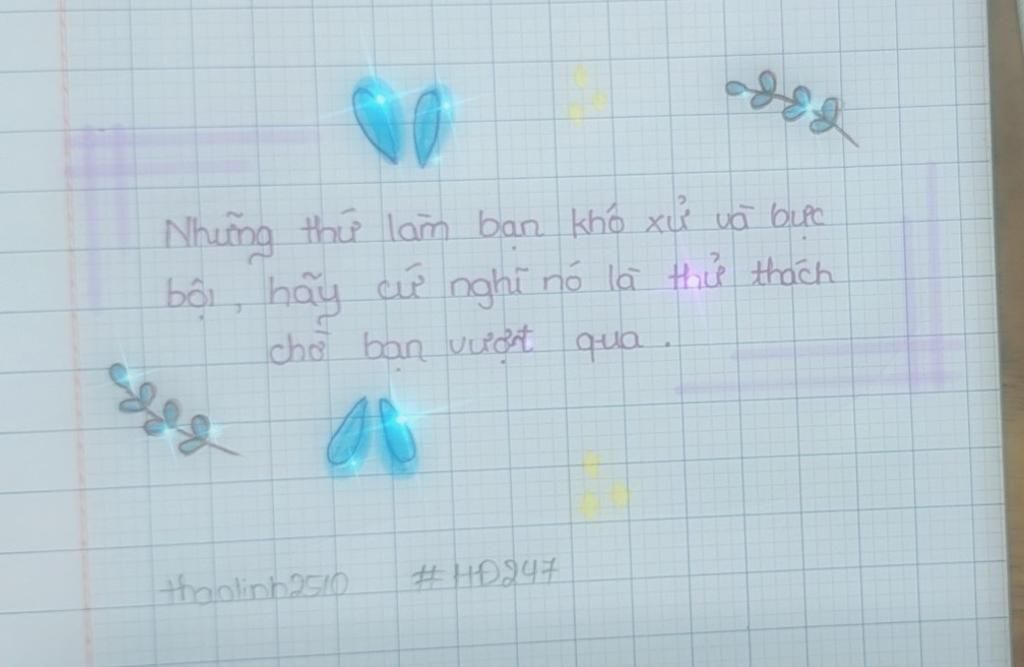 Những thứ làm bạn khó xử và bực
bội, hãy cứ nghĩ nó là thử thách
chờ bạn vượt qua.
thaolinh2510 #HĐ247